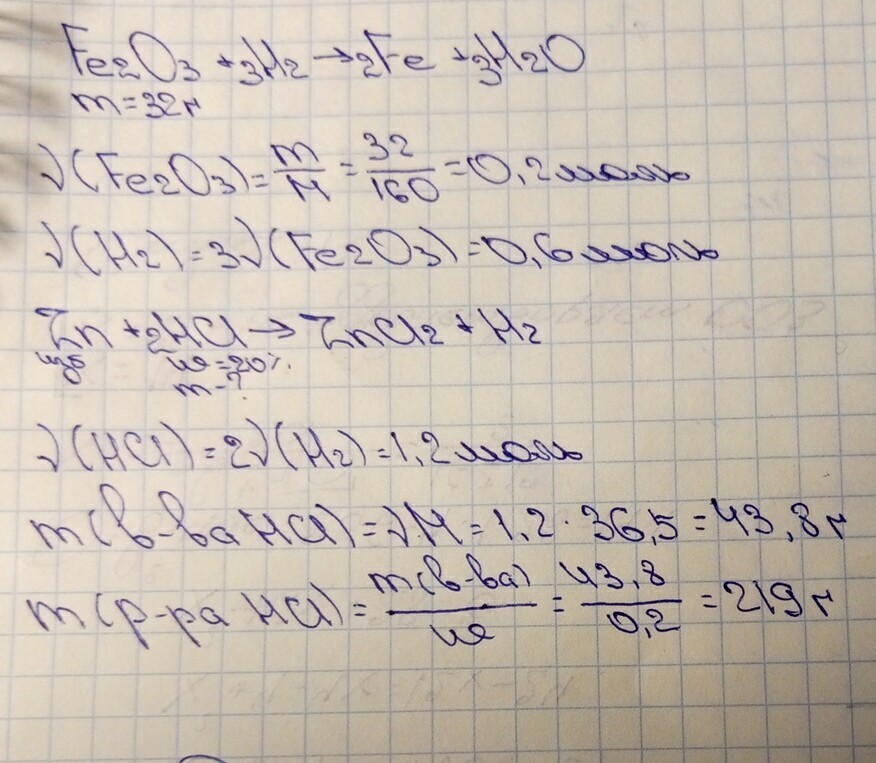 Fe2O3 + 3H2 → 2Fe + 3H2O
m = 32 г
ν(Fe2O3) = m/M = 32/160 = 0,2 моль
ν(H2) = 3ν(Fe2O3) = 0,6 моль
Zn + 2HCl → ZnCl2 + H2
изб ω = 20%
m - ?
ν(HCl) = 2ν(H2) = 1,2 моль
m(в-ва HCl) = ν.M = 1,2 · 36,5 = 43,8 г
m(р-ра HCl) = m(в-ва)/ω = 43,8/0,2 = 219 г